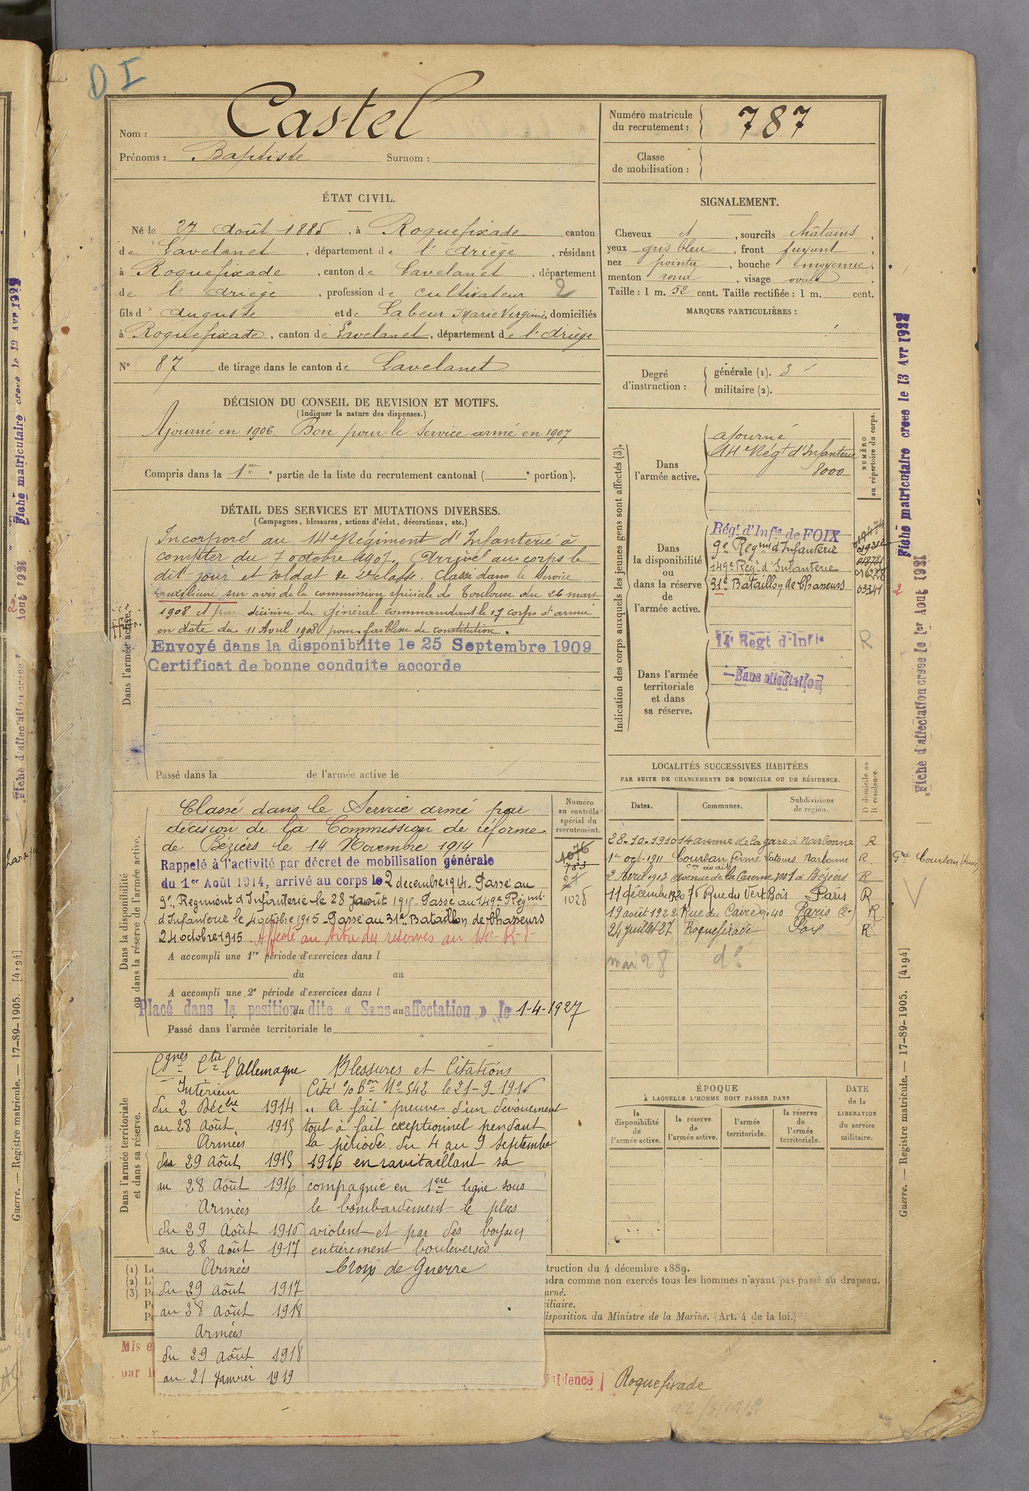 D I
Nom : Castel
Prénoms : Baptiste Surnom :
Numéro matricule du recrutement : 787
Classe de mobilisation :
ÉTAT CIVIL.
Né le 27 Août 1886, à Roquefixade canton
de Lavelanet, département de l'Ariège, résidant
à Roquefixade, canton de Lavelanet, département
de l'Ariège, profession de cultivateur 2
fils d'Auguste et de Labeur Marie Virginie, domiciliés
à Roquefixade, canton de Lavelanet, département de l'Ariège
N° 87 de tirage dans le canton de Lavelanet
DÉCISION DU CONSEIL DE REVISION ET MOTIFS.
(Indiquer la nature des dispenses.)
Ajourné en 1906. Bon pour le service armé en 1907
Compris dans la 1re partie de la liste du recrutement cantonal ( portion).
DÉTAIL DES SERVICES ET MUTATIONS DIVERSES.
(Campagnes, blessures, actions d'éclat, décorations, etc.)
Dans l'armée active.
Incorporé au 14e Régiment d'Infanterie à
compter du 7 octobre 1907. Arrivé au corps le
dit jour et soldat de 2e classe. Classé dans le service
auxiliaire sur avis de la commission spéciale de Toulouse du 26 mars
1908 et par décision du Général Commandant le 17 corps d'armée
en date du 11 Avril 1908 pour faiblesse de constitution.
Envoyé dans la disponibilité le 25 Septembre 1909
Certificat de bonne conduite accorde
Passé dans la de l'armée active le
Dans la disponibilité ou dans la réserve de l'armée active.
Classé dans le Service armé par
décision de la Commission de réforme
de Béziers le 14 Novembre 1914
Rappelé à l'activité par décret de mobilisation générale
du 1er Août 1914, arrivé au corps le 2 decembre 1914. Passé au
9e Regiment d'Infanterie le 28 août 1915. Passé au 149e Régiment
d'Infanterie le 4 octobre 1915 Passé au 31e Bataillon de Chasseurs
24 octobre 1915. Affecté au titre des réserves au 14e R.I.
A accompli une 1re période d'exercices dans l
du au
A accompli une 2e période d'exercices dans l
Placé dans la position dite « Sans affectation » le 1-4-1927
Passé dans l'armée territoriale le
Numéro au contrôle spécial du recrutement.
1028
Dans l'armée territoriale et dans sa réserve.
Cgnes Ctre l'Allemagne
Intérieur
du 2 Décbre 1914
au 28 Août 1915
Armées
du 29 Août 1915
au 28 Août 1916
Armées
du 29 Août 1916
au 28 Août 1917
Armées
du 29 Août 1917
au 28 Août 1918
Armées
du 29 Août 1918
au 21 Janvier 1919
Blessures et Citations
Cité % Bon No 542 le 21-9-1916
" A fait preuve d'un dévouement
tout à fait exceptionnel pendant
la période du 4 au 9 Septembre
1916 en ravitaillant sa
compagnie en 1ère ligne sous
le bombardement le plus
violent et par des boyaux
entièrement bouleversés
Croix de Guerre
SIGNALEMENT.
Cheveux et, sourcils châtains,
yeux gris bleu, front fuyant
nez pointu, bouche moyenne,
menton rond, visage ovale
Taille : 1 m. 52 cent. Taille rectifiée : 1 m. cent.
MARQUES PARTICULIÈRES :
Degré d'instruction : générale (1). 3
militaire (2).
Indication des corps auxquels les jeunes gens sont affectés (3).
NUMÉRO au répertoire du corps.
Dans l'armée active.
ajourné
14e Régt d'Infanterie
8000
Dans la disponibilité ou dans la réserve de l'armée active.
Régt d'Infie de FOIX
9e Régimt d'Infanterie
149e Régt d'Infanterie
31e Bataillon de Chasseurs
03341
Dans l'armée territoriale et dans sa réserve.
14e Regt d'Infie R
Sans affectation
LOCALITÉS SUCCESSIVES HABITÉES
PAR SUITE DE CHANGEMENTS DE DOMICILE OU DE RÉSIDENCE.
Dates. Communes. Subdivisions de région. D domicile ou R résidence.
28-10-1910 14 avenue de la gare à Narbonne R
1er oct. 1911 Coursan Narbonne R
2 Avril 1912 avenue de la Caserne à Béziers R
11 décembre 20 76 Rue du Vert Bois Paris R
19 août 1922 Rue du Caire 40 Paris (2e) R
24 juillet 27 Roquefixade Foix R
mai 28 do
ÉPOQUE
À LAQUELLE L'HOMME DOIT PASSER DANS
la disponibilité de l'armée active.
la réserve de l'armée active.
l'armée territoriale.
la réserve de l'armée territoriale.
DATE de la LIBÉRATION du service militaire.
(1)
(2)
(3)
truction du 4 décembre 1889.
ndra comme non exercés tous les hommes n'ayant pas passé au drapeau.
urné.
xiliaire.
isposition du Ministre de la Marine. (Art. 4 de la loi.)
Mis e
par l
sidence Roquefixade
Fiche matriculaire creee le 13 Avr 1922
Fiche d'affectation creee le 1er Août 192
Guerre. — Registre matricule. — 17-89-1905. [4194]
Guerre. — Registre matricule. — 17-89-1905. [4194]